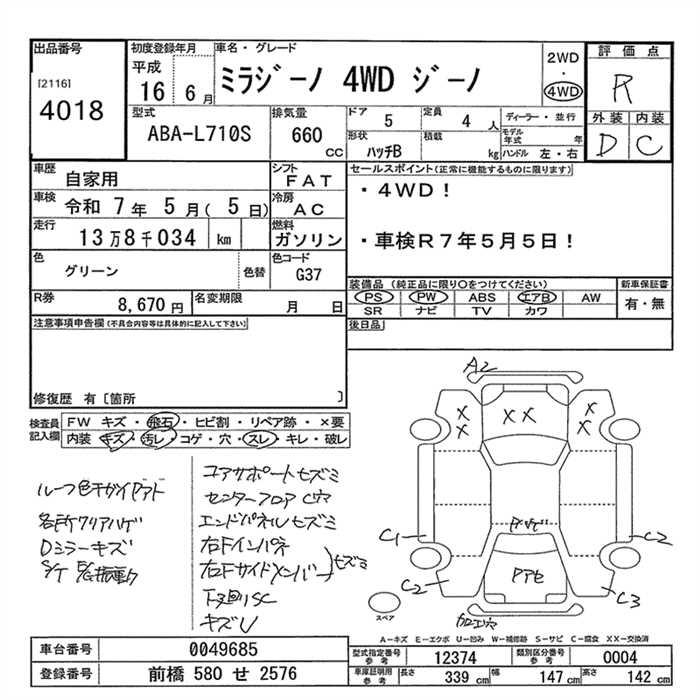 出品番号
[2116]
4018
初度登録年月
平成
16 6月
車名・グレード
ミラジーノ 4WD ジーノ
2WD
・
4WD
評価点
R
外装 内装
D C
型式
ABA-L710S
排気量
660
cc
ドア 5
定員 4 人
ディーラー・並行
形状 ハッチB
積載 kg
モデル年式 年
ハンドル 左・右
車歴 自家用
シフト FAT
セールスポイント(正常に機能するものに限ります)
車検 令和 7年 5月( 5日)
冷房 AC
・4WD!
走行 13万8千034 km
燃料 ガソリン
・車検R7年5月5日!
色 グリーン
色替
色コード G37
装備品 (純正品に限り〇をつけてください)
新車保証書
PS PW ABS エアB AW
有・無
SR ナビ TV カワ
R券 8,670円
名変期限 月 日
後日品
注意事項申告欄(不具合内容等は具体的に記入して下さい)
修復歴 有〔箇所 〕
検査員記入欄
FW キズ・飛石・ヒビ割・リペア跡・×要
内装 キズ・汚レ・コゲ・穴・スレ・キレ・破レ
各所クリアハゲ
Dミラーキズ
コアサポートセズミ
センターフロア
エンドパネルセズミ
右Fインパネ
右Fサイドメンバー
セズミ
下廻りSC
キズU
A2
X X
X X
X X
C1
C2
C2
C3
スペア
A−キズ E−エクボ U−凹み W−補修跡 S−サビ C−腐食 XX−交換済
車台番号 0049685
登録番号 前橋 580 せ 2576
型式指定番号 参考 12374
類別区分番号 参考 0004
車庫証明用 参考 長さ 339 cm 幅 147 cm 高さ 142 cm